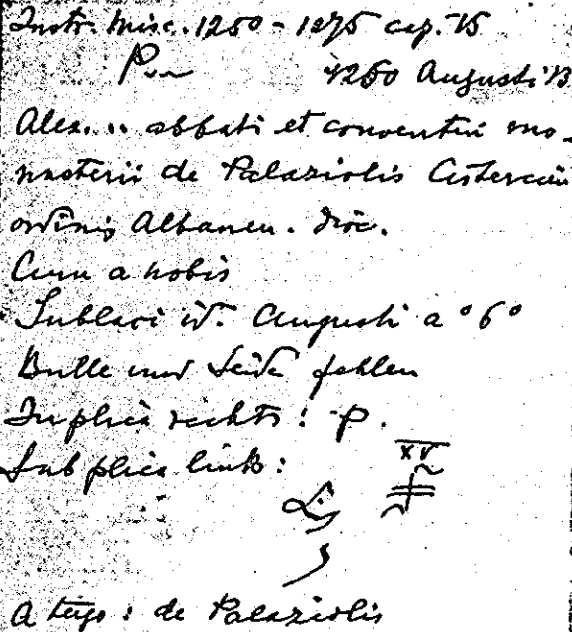 Instr. misc. 1250 - 1275 cap. 15
P
1260 Augusti 13
Alex. .. abbati et conventui mo-
nasterii de Palaziolis Cistercien
ordinis Albanen. dioc.
Cum a nobis
Sublaci id. Augusti a° 6°
Bulle und Seide fehlen
In plica rechts: P.
Sub plica links:
XV
A tergo: de Palaziolis